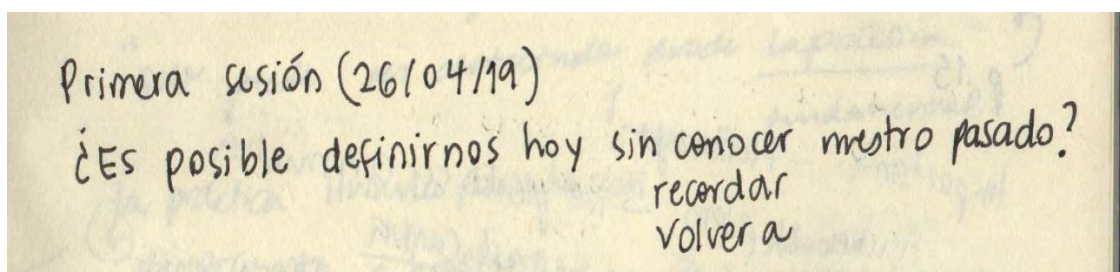 Primera sesión (26/04/19)
¿Es posible definirnos hoy sin conocer nuestro pasado?
recordar
volver a